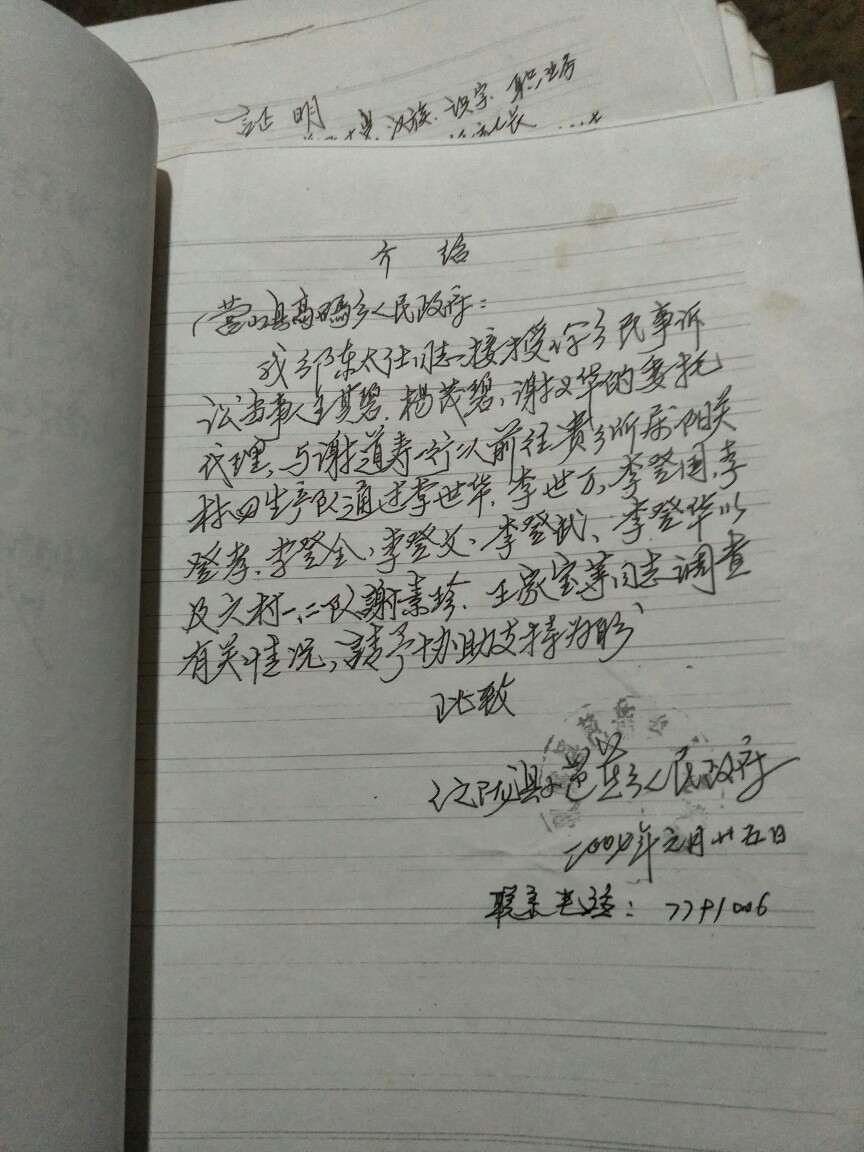 証明
汉族.识字.职业务
介绍
营山县高码乡人民政府:
我乡陈太仕同志接受你乡民事诉
讼当事人王其碧.杨茂碧、谢义华的委托
代理,与谢道寿一行以前往贵乡所属阳关
村四生产队通过李世华.李世万、李登国.李
登孝.李登全、李登文、李登武、李登华以
及六村一、二队謝素珍.王家宝等同志调查
有关情况,請予协助支持为盼
此致
县 乡人民政府
年元月廿五日
联系电话: 7791006